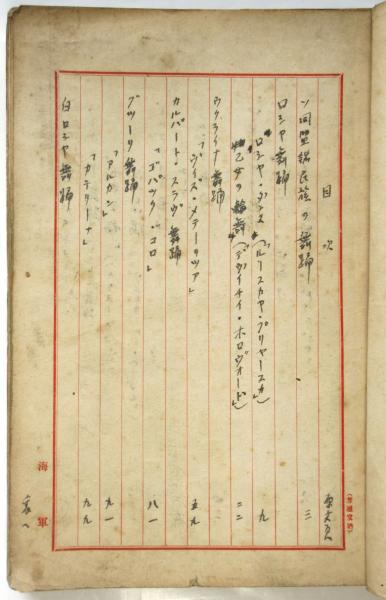 目次
原文頁
ソ同盟諸民族の舞踊 三
ロシヤ舞踊
"ロシヤ・ダンス"(「ルースカヤ・プリヤースカ」) 九
"乙女の輪舞"(「デヴィチイ・ホロヴォード」) 二二
ウクライナ舞踊
「ヴイズ・メテーリツア」 五九
カルパート・スラヴ舞踊
「ゴパック・コロ」 八一
グツーリ舞踊
「アルカン」 九一
「カテリーナ」 九九
白ロシヤ舞踊
海軍